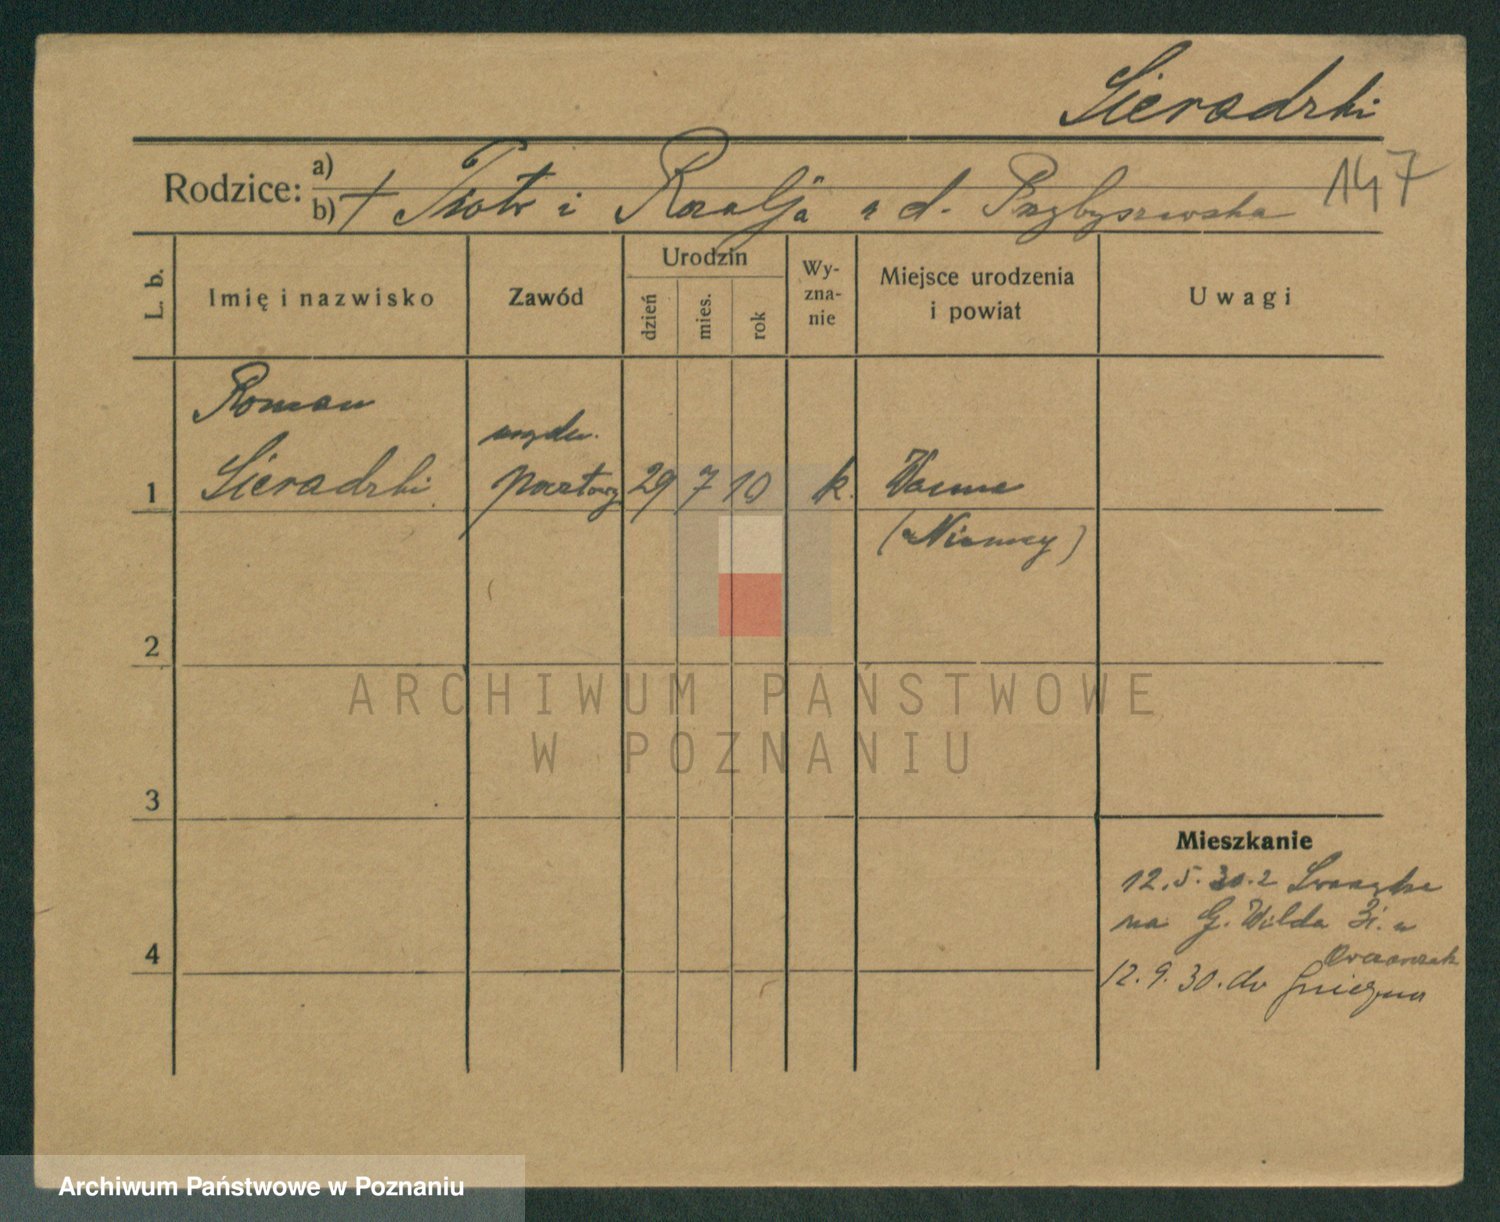 Sieradzki
Rodzice: a)
b) † Piotr i Rozalja z d. Przybyszewska 147
L. b.
Imię i nazwisko
Zawód
Urodzin
dzień
mies.
rok
Wy-
zna-
nie
Miejsce urodzenia
i powiat
Uwagi
Roman
1 Sieradzki
urzędn.
pocztowy
29 7 10 k.
Wanne
(Niemcy)
2
3
4
ARCHIWUM PAŃSTWOWE
W POZNANIU
Mieszkanie
12.5.30. z
na G. Wilda 31. u
Owczarczak
12.9.30. do Gniezna
Archiwum Państwowe w Poznaniu